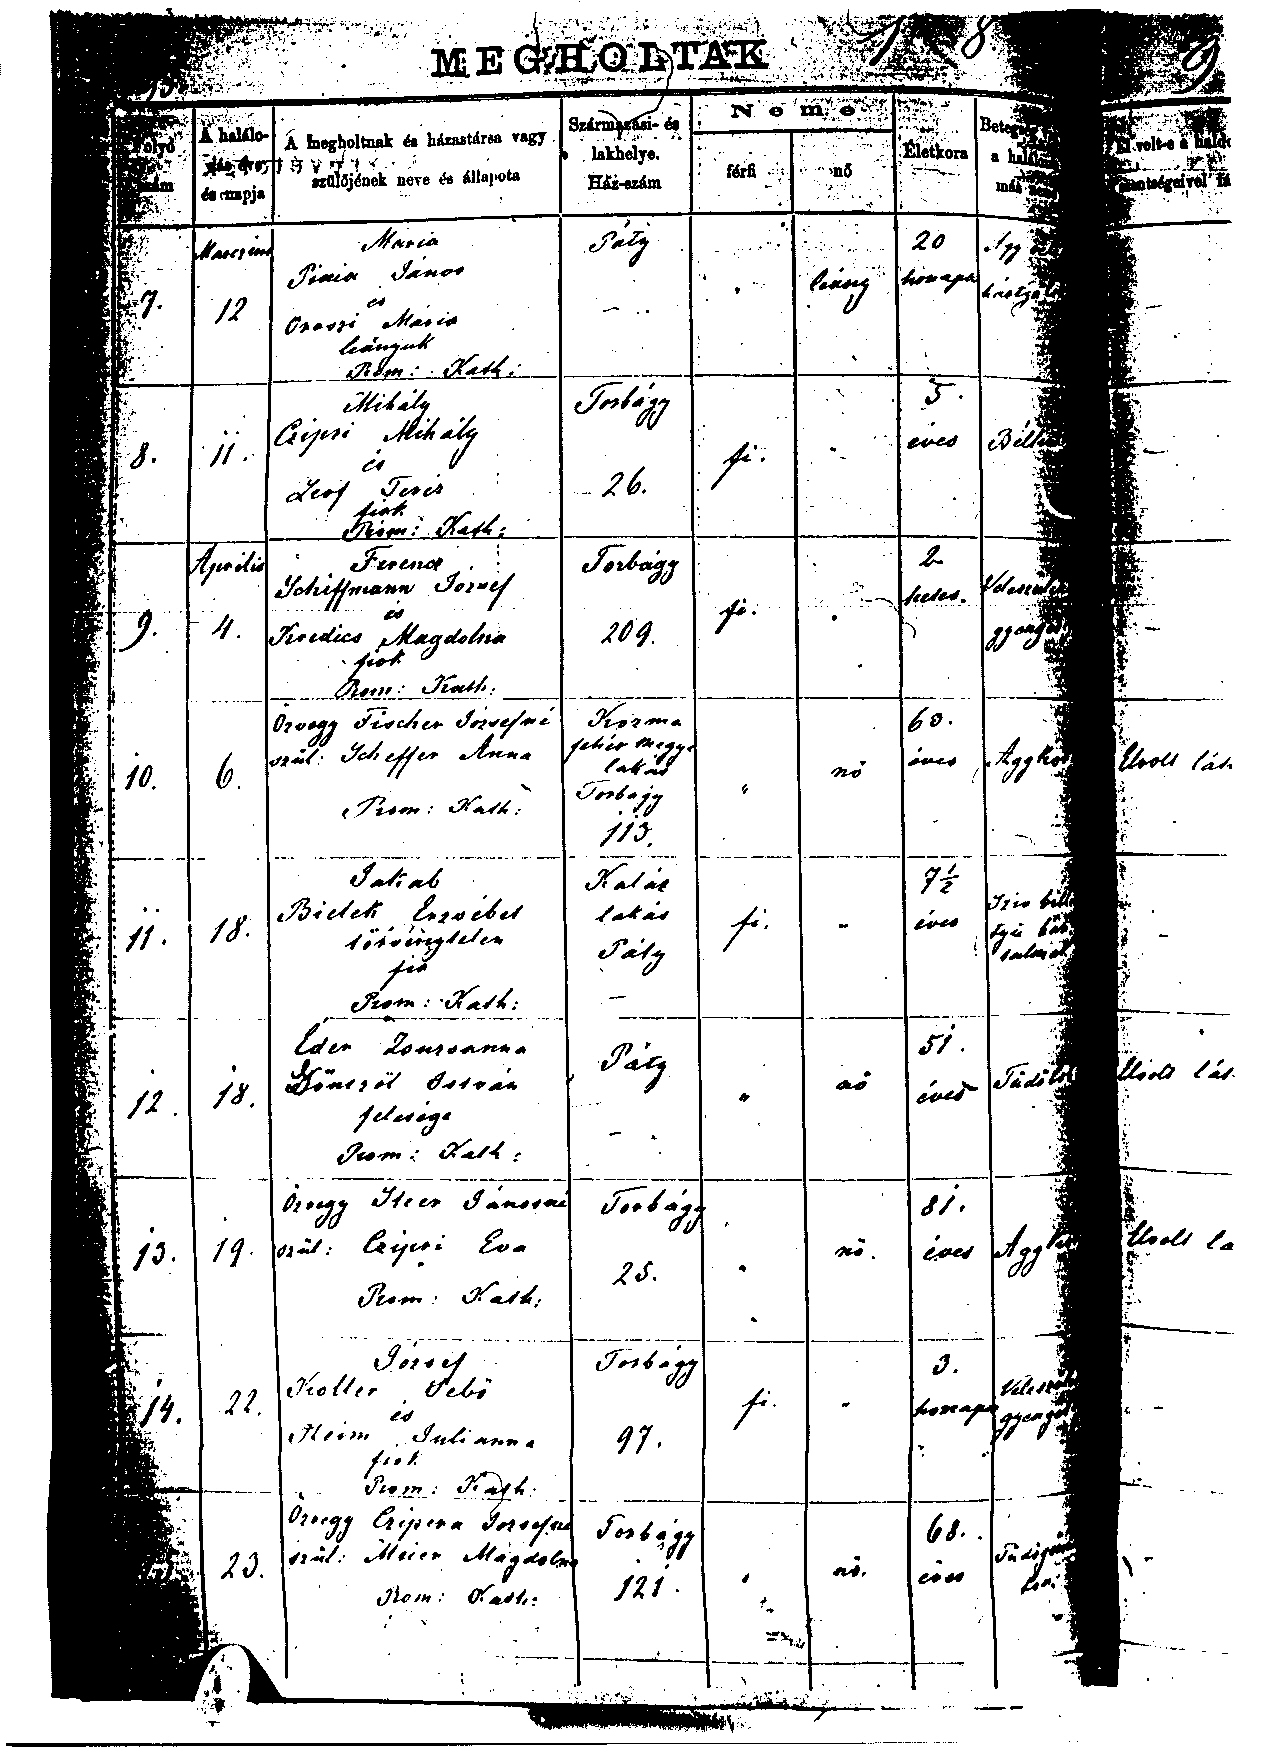 MEGHOLTAK
Folyó szám
A halálozás éve, és napja
A megholtnak és házastársa vagy szülőjének neve és állapota
Származási- és lakhelye. Ház-szám
Neme
férfi
nő
Életkora
Betegség
a halál
más
El volt-e a halál
szentségeivel
7.
Marczius
12
Maria
Piaia János
és
Oroszi Mária
leányuk
Rom: Kath:
Páty
leány
20
honapos
Agy
8.
11.
Mihály
Czipri Mihály
és
Terés
fiok
Rom: Kath:
Torbágy
26.
fi.
5.
éves
9.
Aprilis
4.
Ferencz
Schiffmann József
és
Kredics Magdolna
fiok
Rom: Kath:
Torbágy
209.
fi.
2
hetes.
10.
6.
Özvegy Fischer Józsefné
szül: Scheffer Anna
Rom: Kath:
Kozma
fehér megye
lakás
Torbágy
113.
nő
60.
éves
Aggkor
Elvolt lát
11.
18.
Jakab
Bielek Erzsébet
törvénytelen
fia
Rom: Kath:
Kalász
lakás
Páty
fi.
7½
éves
12.
18.
Éder Zsuzsanna
István
felesége
Rom: Kath:
Páty
nő
51.
éves
Elvolt lát
13.
19.
Özvegy Steer Jánosné
szül: Czipri Eva
Rom: Kath:
Torbágy
25.
nő.
81.
éves
Elvolt lá
14.
22.
József
Koller Sebő
és
Heim Julianna
fiok
Rom: Kath:
Torbágy
97.
fi.
3.
honapos
23.
Özvegy Czipera Józsefné
szül: Meier Magdolna
Rom: Kath:
Torbágy
121.
nő.
68.
éves